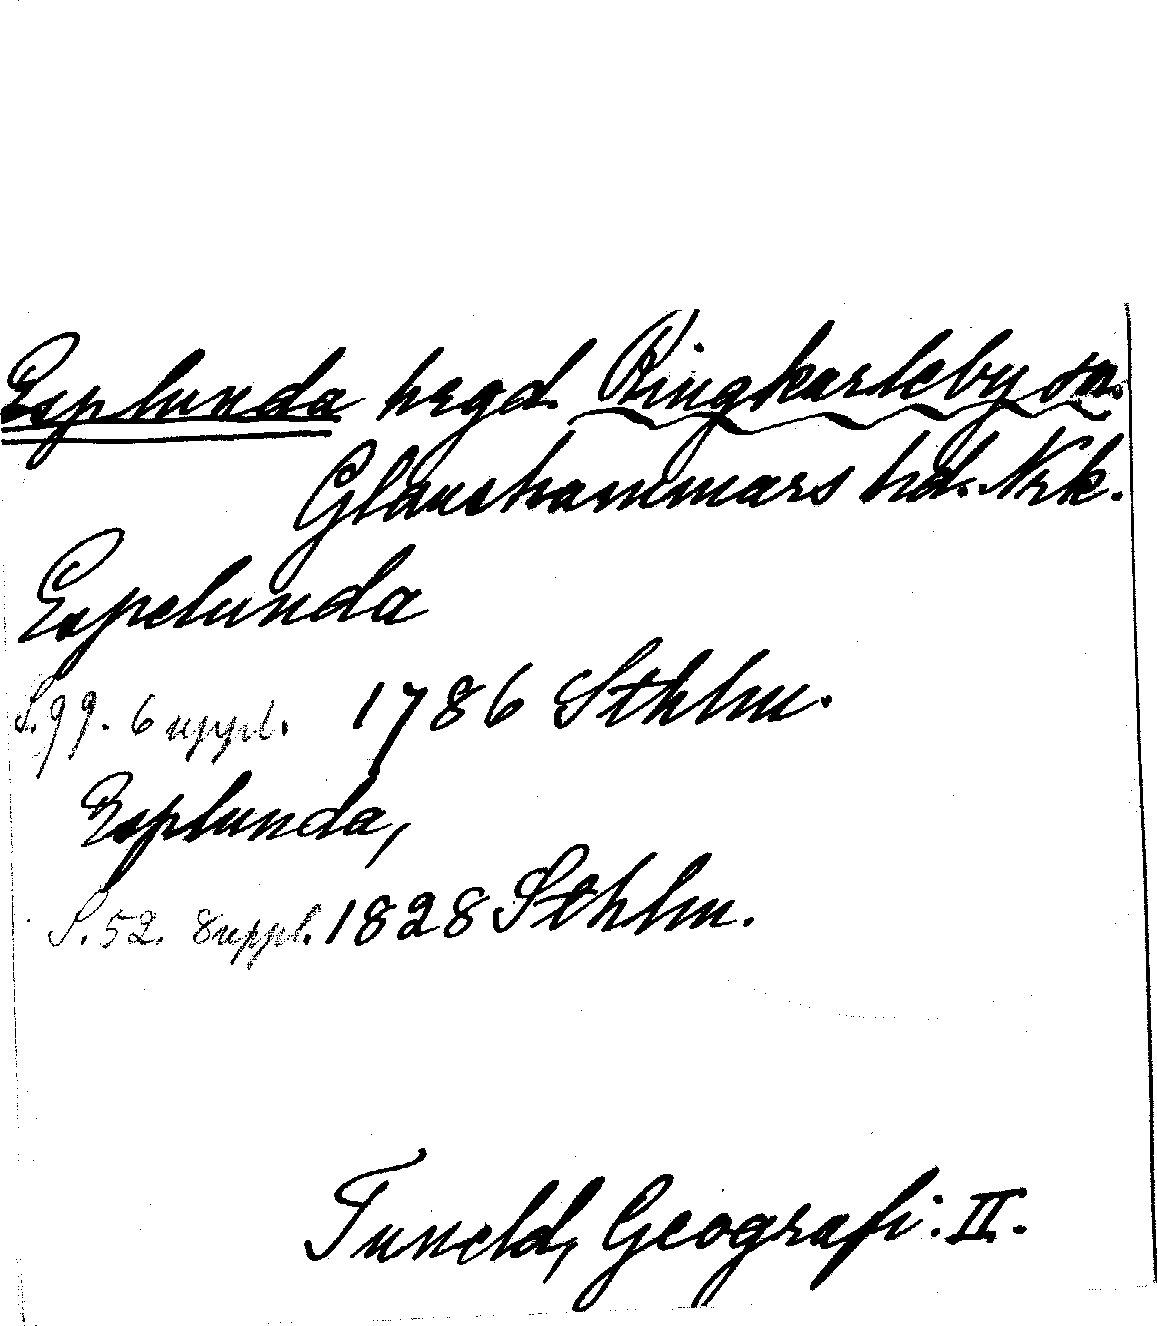 Esplunda hrgd. Ringkarleby sn.
Glanshammars hd. Nrk.
Espelunda
S. 99. 6 uppl. 1786 Sthlm.
Esplunda,
S. 52. 8 uppl. 1828 Sthlm.
Tuneld, Geografi: II.